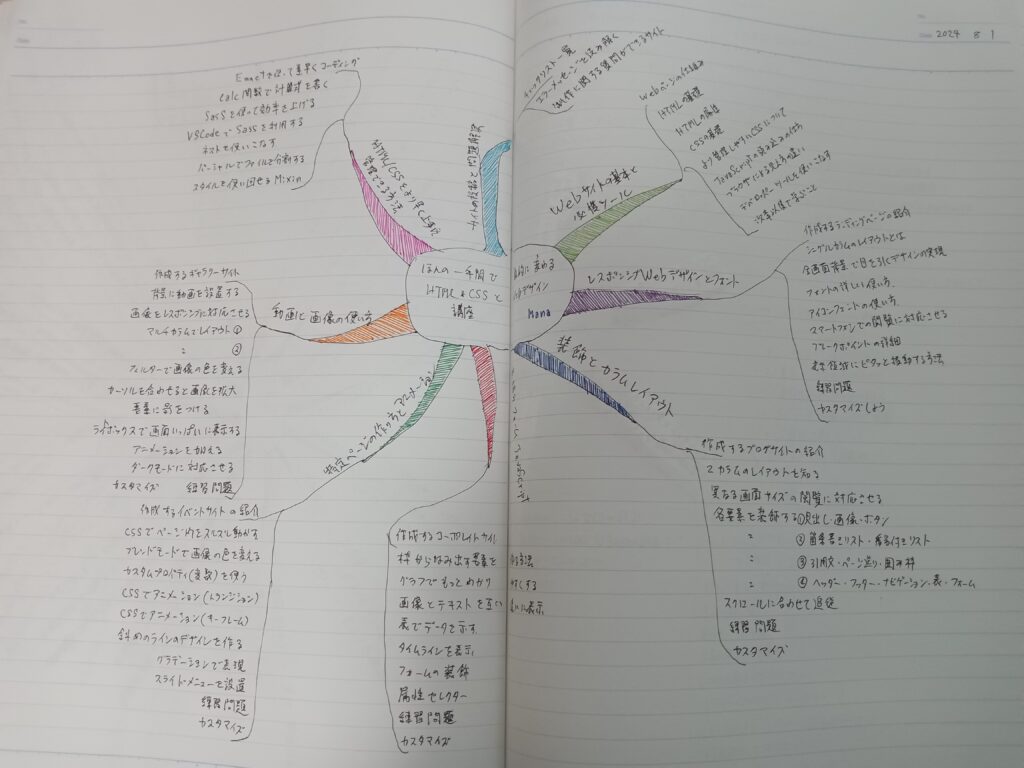 2024 8 1
ほんの一手間で
HTML & CSS と
講座
変わる
デザイン
Mana
Webサイトの基本と
必携ツール
Webページの仕組み
HTMLの基礎
HTMLの
CSSの基礎
より管理しやすいCSSについて
JavaScriptの読み込みの仕方
ブラウザによる見え方の違い
デベロッパーツールを使いこなす
次章以降で学ぶこと
レスポンシブWebデザインとフォント
作成するランディングページの紹介
シングルカラムのレイアウトとは
全画面背景で目を引くデザインの実現
フォントの詳しい使い方
アイコンフォントの使い方
スマートフォンでの閲覧に対応させる
ブレークポイントの詳細
ピタッと移動する方法
練習問題
カスタマイズしよう
装飾とカラムレイアウト
作成するブログサイトの紹介
2カラムのレイアウトを知る
異なる画面サイズの閲覧に対応させる
各要素を装飾する①見出し・画像・ボタン
〃 ②箇条書きリスト・番号付きリスト
〃 ③引用文・ページ送り・囲み枠
〃 ④ヘッダー・フッター・ナビゲーション・表・フォーム
スクロールに合わせて追従
練習問題
カスタマイズ
作成するコーポレートサイト
枠からはみ出す要素を 作る方法
グラフでもっとわかり やすくする
画像とテキストを互い 違いに表示
表でデータを示す
タイムラインを表示
フォームの装飾
属性セレクター
練習問題
カスタマイズ
特定ページの作り方とアニメーション
作成するイベントサイトの紹介
CSSでページ内をスムーズに動かす
ブレンドモードで画像の色を変える
カスタムプロパティ(変数)を使う
CSSでアニメーション(トランジション)
CSSでアニメーション(キーフレーム)
斜めのラインのデザインを作る
グラデーションで表現
スライドメニューを設置
練習問題
カスタマイズ
動画と画像の使い方
作成するギャラリーサイト
背景に動画を設置する
画像をレスポンシブに対応させる
マルチカラムでレイアウト①
〃 ②
フィルターで画像の色を変える
カーソルを合わせると画像を拡大
要素に影をつける
ライトボックスで画面いっぱいに表示する
アニメーションを加える
ダークモードに対応させる
カスタマイズ 練習問題
HTML/CSSをより早く上手に
管理できる方法
Emmetを使って素早くコーディング
Calc関数で計算式を書く
Sassを使って効率を上げる
VSCodeでSassを利用する
ネストを使いこなす
パーシャルでファイルを分割する
スタイルを使い回せるMixin
チェックリスト一覧
エラーメッセージを読み解く
制作に関する質問ができるサイト